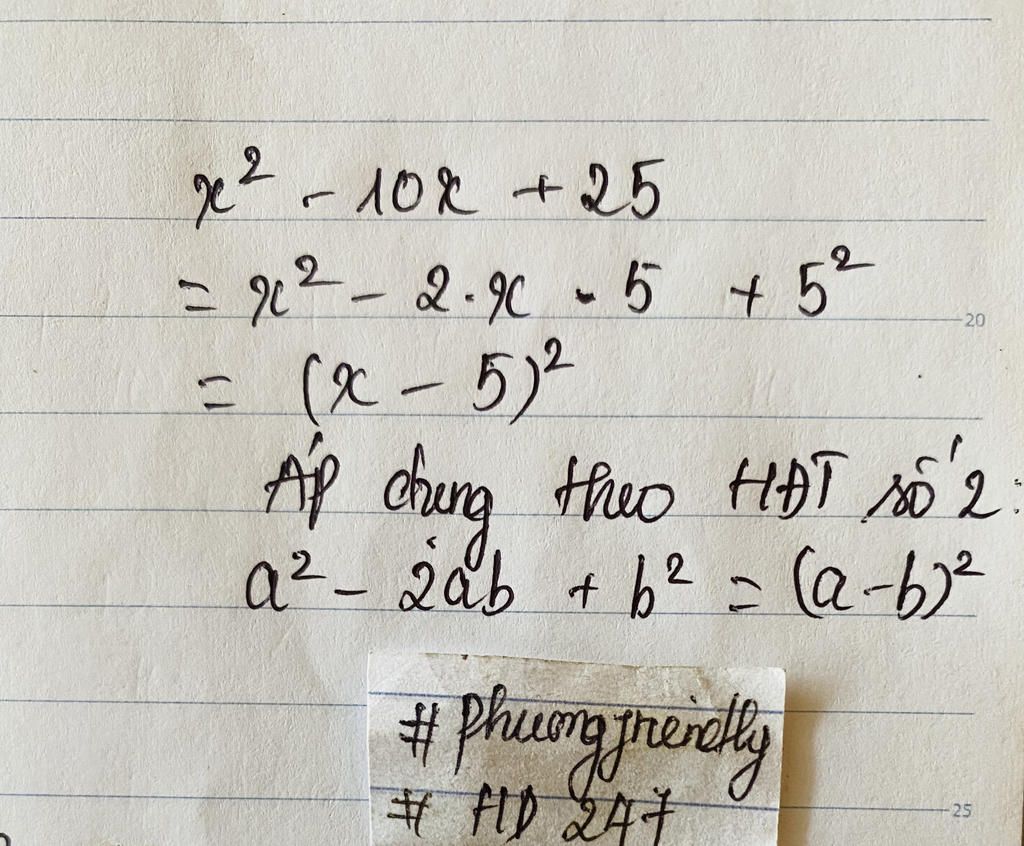 x² - 10x + 25
= x² - 2.x . 5 + 5²
20
= (x - 5)²
Áp dụng theo HĐT số 2:
a² - 2ab + b² = (a-b)²
# phuongfriendly
# HD 247
25